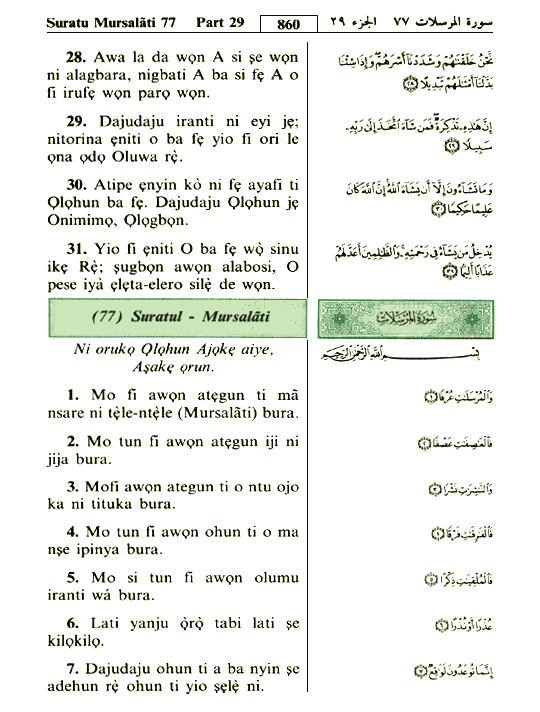 Suratu Mursalāti 77 Part 29 860 سورة المرسلات ٧٧ الجزء ٢٩
28. Awa la da wọn A si ṣe wọn
ni alagbara, nigbati A ba si fẹ A o
fi irufẹ wọn parọ wọn.
29. Dajudaju iranti ni eyi jẹ;
nitorina ẹniti o ba fẹ yio fi ori le
ọna ọdọ Oluwa rẹ̀.
30. Atipe ẹnyin kò ni fẹ ayafi ti
Ọlọhun ba fẹ. Dajudaju Ọlọhun jẹ
Onimimọ, Ọlọgbọn.
31. Yio fi ẹniti O ba fẹ wọ̀ sinu
ikẹ Rẹ̀; ṣugbọn awọn alabosi, O
pese iyà ẹlẹta-elero silẹ̀ de wọn.
(77) Suratul - Mursalāti
Ni orukọ Ọlọhun Ajọkẹ aiye,
Aṣakẹ ọrun.
1. Mo fi awọn atẹgun ti mã
nsare ni tẹ̀le-ntẹ̀le (Mursalāti) bura.
2. Mo tun fi awọn atẹgun iji ni
jija bura.
3. Mofi awọn ategun ti o ntu ojo
ka ni tituka bura.
4. Mo tun fi awọn ohun ti o ma
nṣe ipinya bura.
5. Mo si tun fi awọn olumu
iranti wá bura.
6. Lati yanju ọ̀rọ̀ tabi lati ṣe
kilọkilọ.
7. Dajudaju ohun ti a ba nyin ṣe
adehun rẹ̀ ohun ti yio ṣẹlẹ̀ ni.
نَّحْنُ خَلَقْنَٰهُمْ وَشَدَدْنَآ أَسْرَهُمْ وَإِذَا شِئْنَا
بَدَّلْنَآ أَمْثَٰلَهُمْ تَبْدِيلًا ﴿٢٨﴾
إِنَّ هَٰذِهِۦ تَذْكِرَةٌ فَمَن شَآءَ ٱتَّخَذَ إِلَىٰ رَبِّهِۦ
سَبِيلًا ﴿٢٩﴾
وَمَا تَشَآءُونَ إِلَّآ أَن يَشَآءَ ٱللَّهُ إِنَّ ٱللَّهَ كَانَ
عَلِيمًا حَكِيمًا ﴿٣٠﴾
يُدْخِلُ مَن يَشَآءُ فِى رَحْمَتِهِۦ وَٱلظَّٰلِمِينَ أَعَدَّ لَهُمْ
عَذَابًا أَلِيمًا ﴿٣١﴾
سُورَةُ المُرْسَلَات
بِسْمِ ٱللَّهِ ٱلرَّحْمَٰنِ ٱلرَّحِيمِ
وَٱلْمُرْسَلَٰتِ عُرْفًا ﴿١﴾
فَٱلْعَٰصِفَٰتِ عَصْفًا ﴿٢﴾
وَٱلنَّٰشِرَٰتِ نَشْرًا ﴿٣﴾
فَٱلْفَٰرِقَٰتِ فَرْقًا ﴿٤﴾
فَٱلْمُلْقِيَٰتِ ذِكْرًا ﴿٥﴾
عُذْرًا أَوْ نُذْرًا ﴿٦﴾
إِنَّمَا تُوعَدُونَ لَوَٰقِعٌ ﴿٧﴾